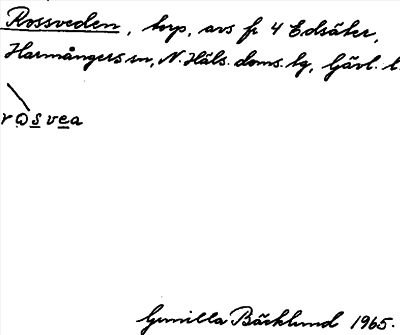 Rossveden, torp, avs fr 4 Edsäter,
Harmångers sn, N. Häls. doms. tg, Gävl. l.
rosvea
Gunilla Bäcklund 1965.